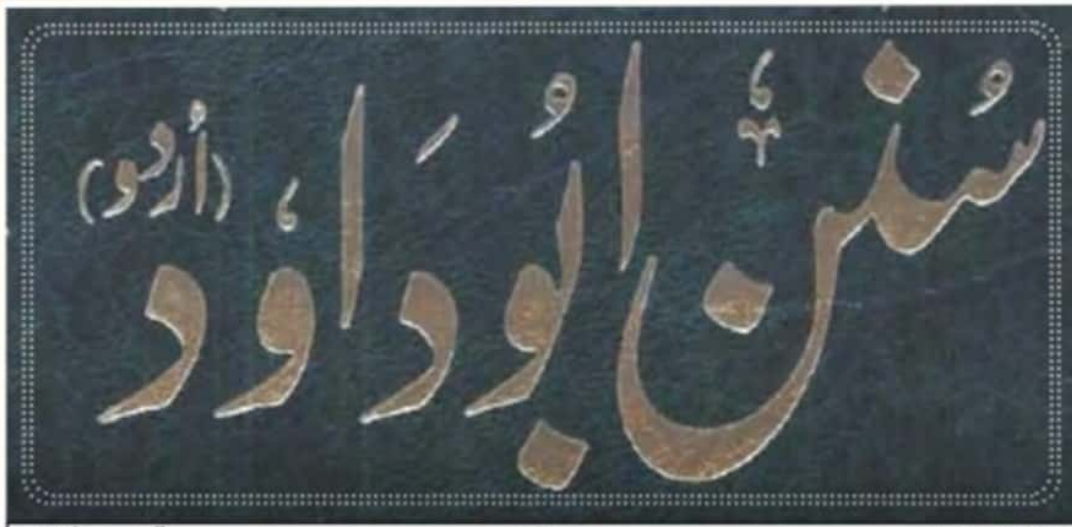 سُنن ابُو دَاوٗد (اُردو)